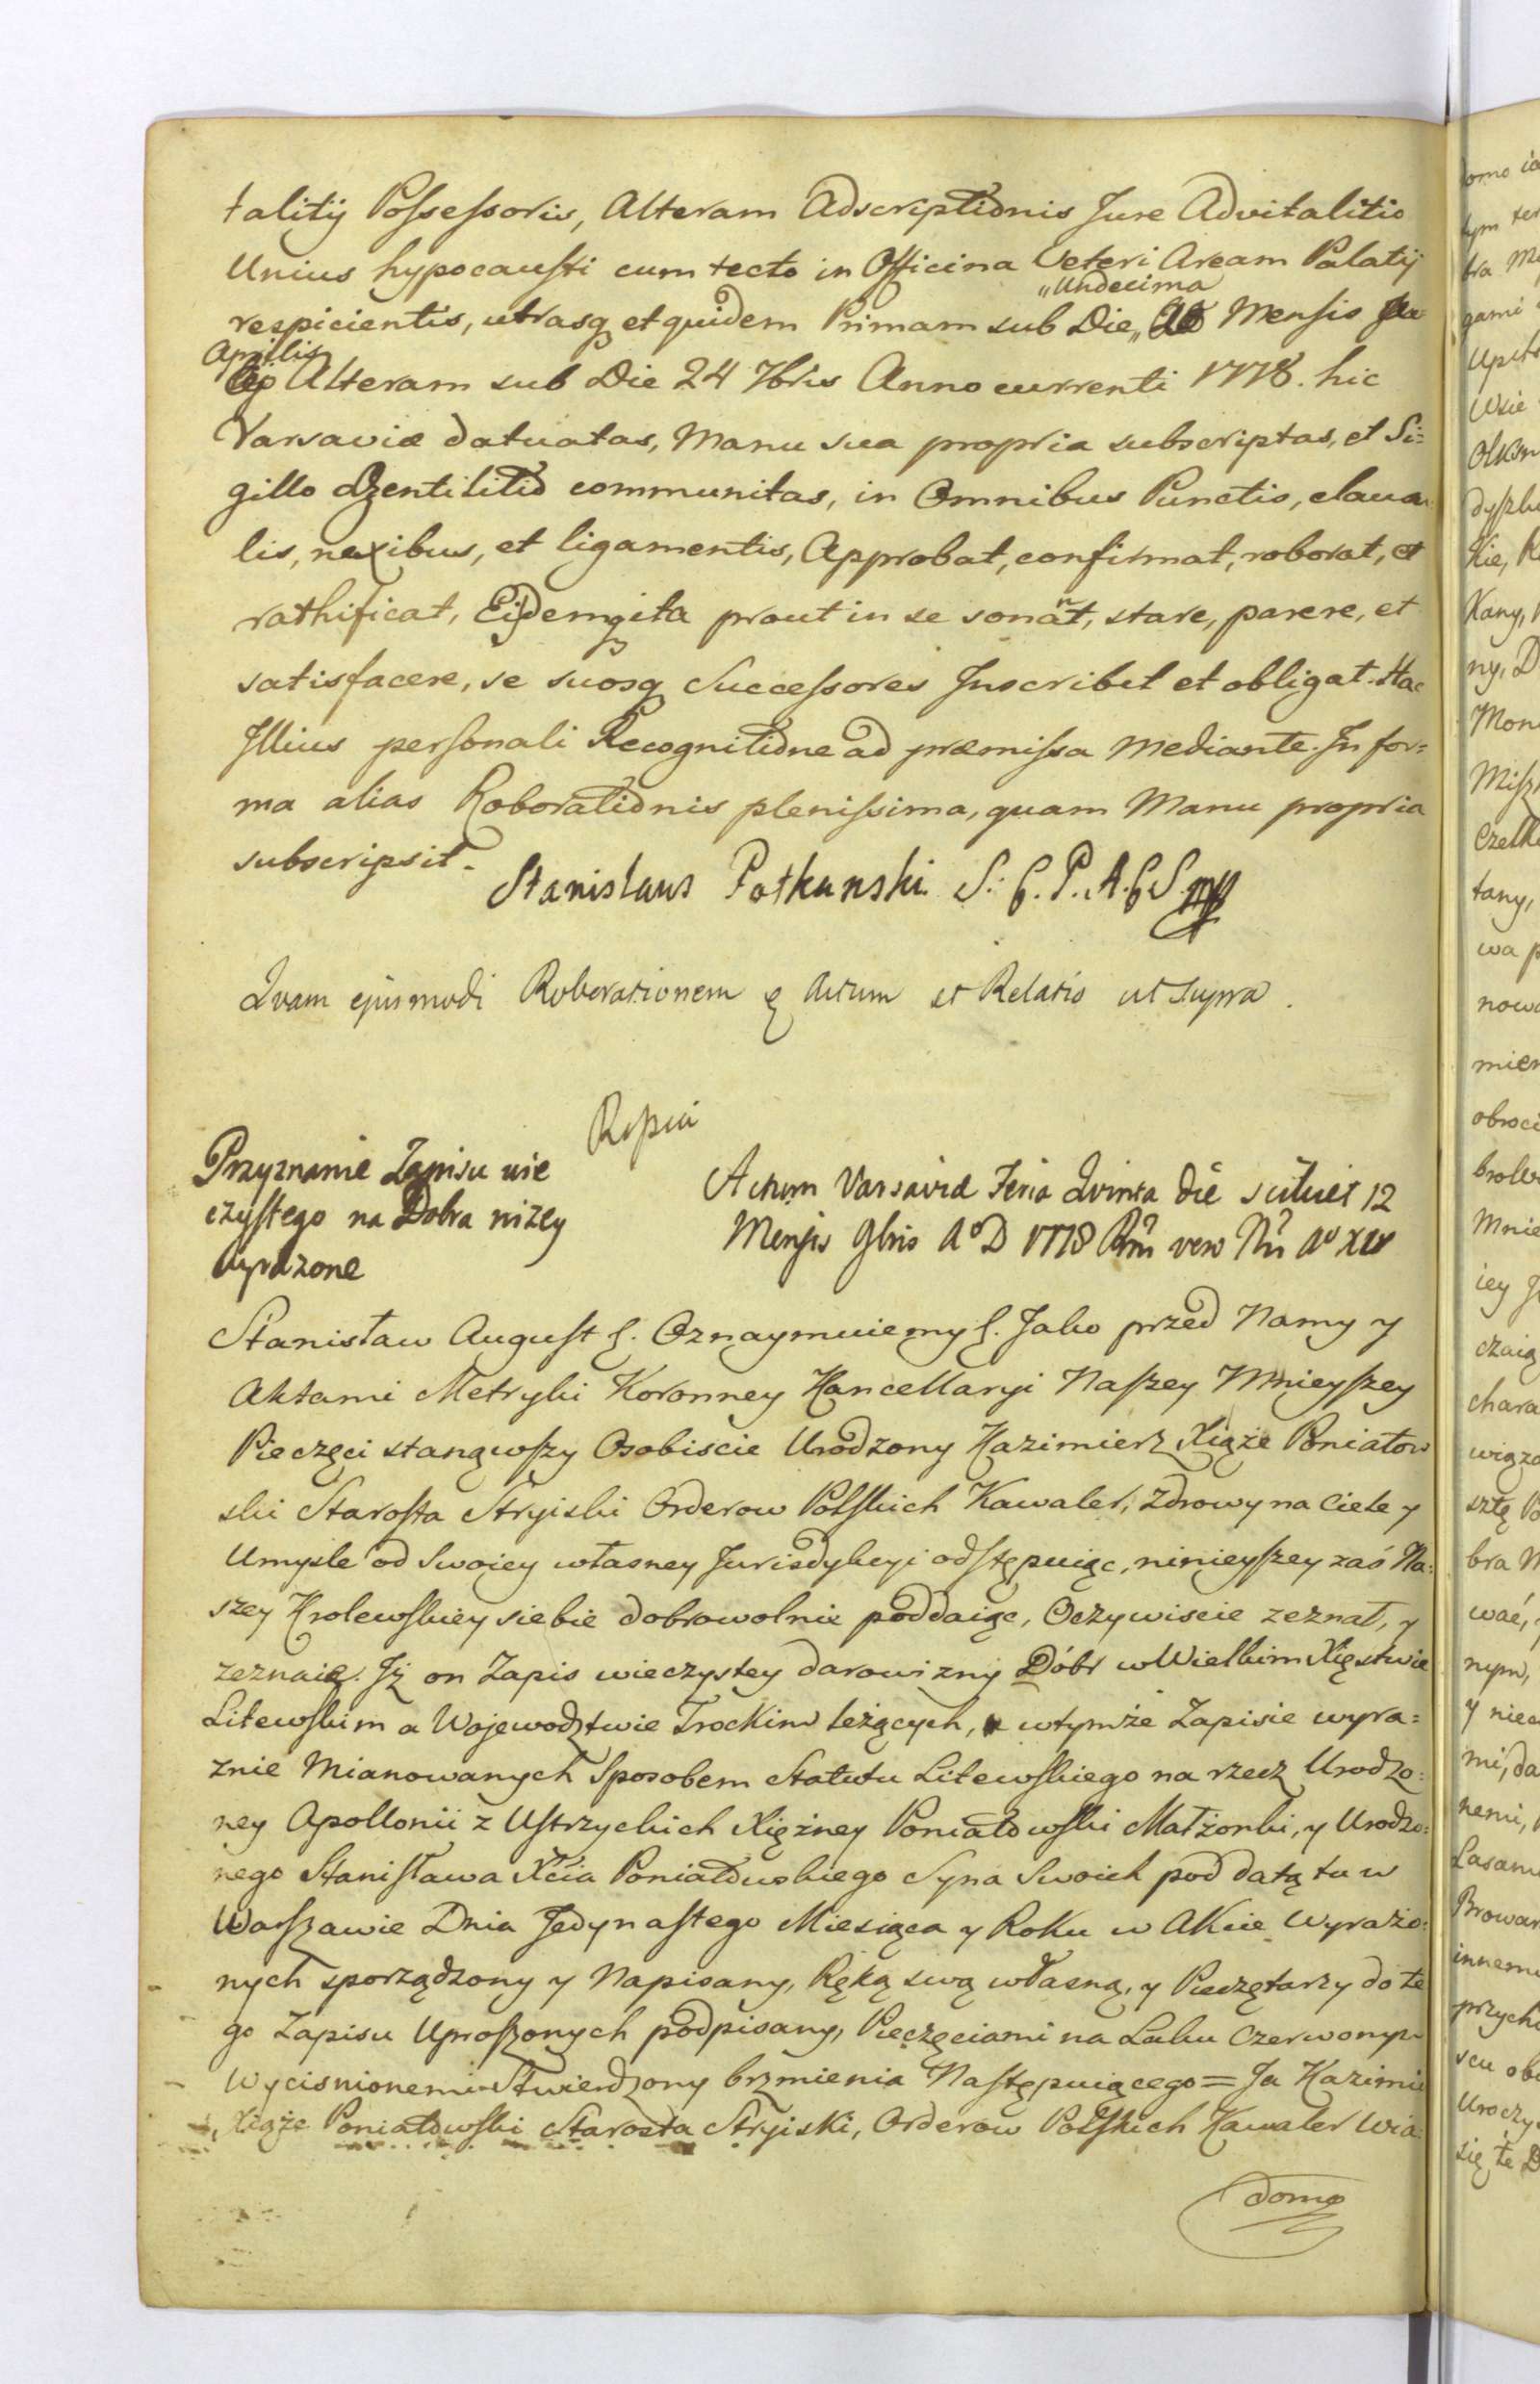 talitij Possessoris, Alteram Adscriptionis Jure Advitalitio
Unius hypocausti cum tecto in Officina Veteri Aream Palatij
„Undecima
respicientis, utrasq et quidem Primam sub Die„ Mensis
Aprilis
Alteram sub Die 24 7bris Anno currenti 1778. hic
Varsaviæ datuatas, Manu sua propria subscriptas, et Si=
gillo Gentilitio communitas, in Omnibus Punctis, clausu
lis, nexibus, et ligamentis, Approbat, confirmat, roborat, et
rathificat, Eijdemq ita prout in se sonant, stare, parere, et
satisfacere, se suosq Successores Inscribit et obligat. Hac
Illius personali Recognitione ad præmissa Mediante. In for=
ma alias Roborationis plenissima, quam Manu propria
subscripsit.
Stanislaus Potkanski
Quam ejusmodi Roborationem Actum et Relatio ut supra.
Kopia
Przyznanie Zapisu wie
czystego na Dobra nizey
wyrazone
Actum Varsaviæ Feria Quinta die scilicet 12
Mensis 9bris A° D 1778 Rni vero Nri A° XIV
Stanisław August &. Oznaymuiemy &. Jako przed Namy y
Aktami Metryki Koronney Kancellaryi Naszey Mnieyszey
Pieczęci stanąwszy Osobiscie Urodzony Kazimierz Xiąże Poniatow
ski Starosta Stryiski Orderow Polskich Kawaler, zdrowy na Ciele y
Umysle od Swoiey własney Jurisdykcyi odstępuiąc, ninieyszey zaś Na=
szey Krolewskiey siebie dobrowolnie poddaiąc, Oczywiscie zeznał, y
zeznaie. Jż on Zapis wieczystey darowizny Dóbr w Wielkim Xięstwie
Litewskim a Wojewodztwie Trockim leżących, w tymże Zapisie wyra=
znie Mianowanych Sposobem Statutu Litewskiego na rzecz Urodzo=
ney Apollonii z Ustrzyckich Xiężney Poniatowski Małżonki, y Urodzo=
nego Stanisława Xcia Poniatowskiego Syna Swoich pod datą tu w
Warszawie Dnia Jedynastego Miesiąca y Roku w Akcie Wyrażo=
nych sporządzony y Napisany, Ręką swą własną, y Pieczętarzy do te
go Zapisu Uproszonych podpisany, Pieczęciami na Laku Czerwonym
Wycisnionemi Stwierdzony brzmienia Następuiącego = Ja Kazimie
Xiąże Poniatowski Starosta Stryiski, Orderow Polskich Kawaler Wia=
domo